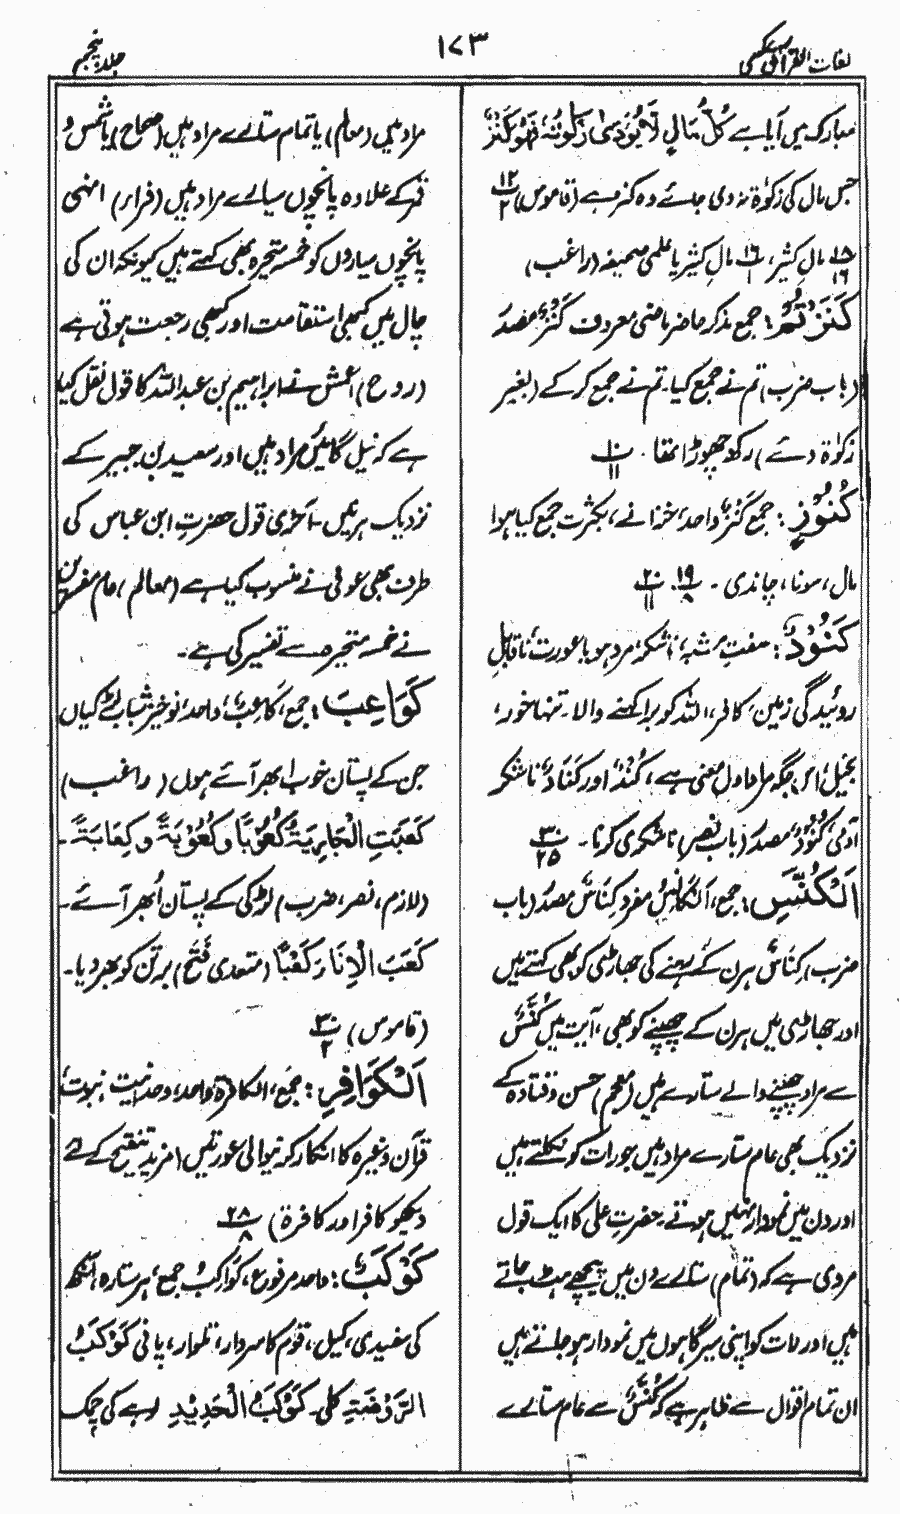 لغات القرآن عکسی
۱۷۳
جلد پنجم
مبارکہ میں آیا ہے کُلُّ مَالٍ لَا یُؤَدّیٰ زَکٰوتُہٗ فَہُوَ کَنْزٌ
جس مال کی زکوٰۃ نہ دی جائے وہ کنز ہے (قاموس) ۱۲/۲
۱۵/۱۶ مالِ کثیر، ۱۶/۱ مالِ کثیر یا علمی صحیفہ (راغب)
کَنَزْتُمْ: جمع مذکر حاضر ماضی معروف کَنْزٌ مصدر
(باب ضرب) تم نے جمع کیا۔ تم نے جمع کر کے (بغیر
زکوٰۃ دئے) رکھ چھوڑا تھا۔ ۱۰/۱۱
کُنُوْزٍ: جمع کَنْزٌ واحد، خزانے، بکثرت جمع کیا ہوا
مال، سونا، چاندی۔ ۱۹/۸، ۲۰/۱۱
کَنُوْدٌ: صفت مشبہ، ناشکرا مرد ہو یا عورت، ناقابلِ
روئیدگی زمین، کافر، اللہ کو برا کہنے والا۔ تنہا خور،
بخیل، اس جگہ مراد اول معنی ہے، کُنُدٌ اور کَنَّادٌ ناشکر
آدمی، کُنُوْدٌ مصدر (باب نصر) ناشکری کرنا۔ ۳۰/۲۵
اَلْکُنَّسِ: جمع، اَلْکَانِسُ مفرد کِنَاسٌ مصدر (باب
ضرب) کِنَاسٌ ہرن کے رہنے کی جھاڑی کو بھی کہتے ہیں
اور جھاڑی میں ہرن کے چھپنے کو بھی، آیت میں کُنَّسٌ
سے مراد چھپنے والے ستارے ہیں (معجم) حسن و قتادہ کے
نزدیک بھی عام ستارے مراد ہیں جو رات کو نکلتے ہیں
اور دن میں نمودار نہیں ہوتے۔ حضرت علی کا ایک قول
مروی ہے کہ (تمام) ستارے دن میں پیچھے ہٹ جاتے
ہیں اور رات کو اپنی سیرگاہوں میں نمودار ہو جاتے ہیں
ان تمام اقوال سے ظاہر ہے کہ کُنَّسٌ سے عام ستارے
مراد ہیں (معالم) یا تمام ستارے مراد ہیں (صحاح) یا شمس و
قمر کے علاوہ پانچوں سیارے مراد ہیں (فراء) انہی
پانچوں سیاروں کو خمسہ متحیرہ بھی کہتے ہیں کیونکہ ان کی
چال میں کبھی استقامت اور کبھی رجعت ہوتی ہے
(روح) اعمش نے ابراہیم بن عبداللہ کا قول نقل کیا
ہے کہ نیل گائیں مراد ہیں اور سعید بن جبیر کے
نزدیک ہرنیں۔ آخری قول حضرت ابن عباس کی
طرف بھی عوفی نے منسوب کیا ہے (معالم) عام مفسرین
نے خمسہ متحیرہ سے تفسیر کی ہے۔
کَوَاعِبَ: جمع، کَاعِبٌ، واحد، نوخیز شباب لڑکیاں
جن کے پستان خوب ابھر آئے ہوں (راغب)
کَعَبَتِ الْجَارِیَۃُ کُعُوْبًا وَ کُعُوْبَۃً و کِعَابَۃً۔
(لازم، نصر، ضرب) لڑکی کے پستان اُبھر آئے۔
کَعَبَ الْاِنَاءَ کَعْبًا (متعدی فَتَحَ) برتن کو بھر دیا۔
(قاموس) ۳۰/۲
اَلْکَوَافِرِ: جمع، الکافرۃ واحد، وحدانیت، نبوت،
قرآن وغیرہ کا انکار کرنیوالی عورتیں (مزید تنقیح کے لئے
دیکھو کافر اور کافرۃ) ۲۸/۸
کَوْکَبٌ: واحد مرفوع، کَوَاکِبُ جمع، ہر ستارہ، آنکھ
کی سفیدی، کیل، قوم کا سردار، تلوار، پانی کَوْکَبُ
الرَّوْضَۃِ کلی۔ کَوْکَبُ الْحَدِیْدِ لوہے کی چمک